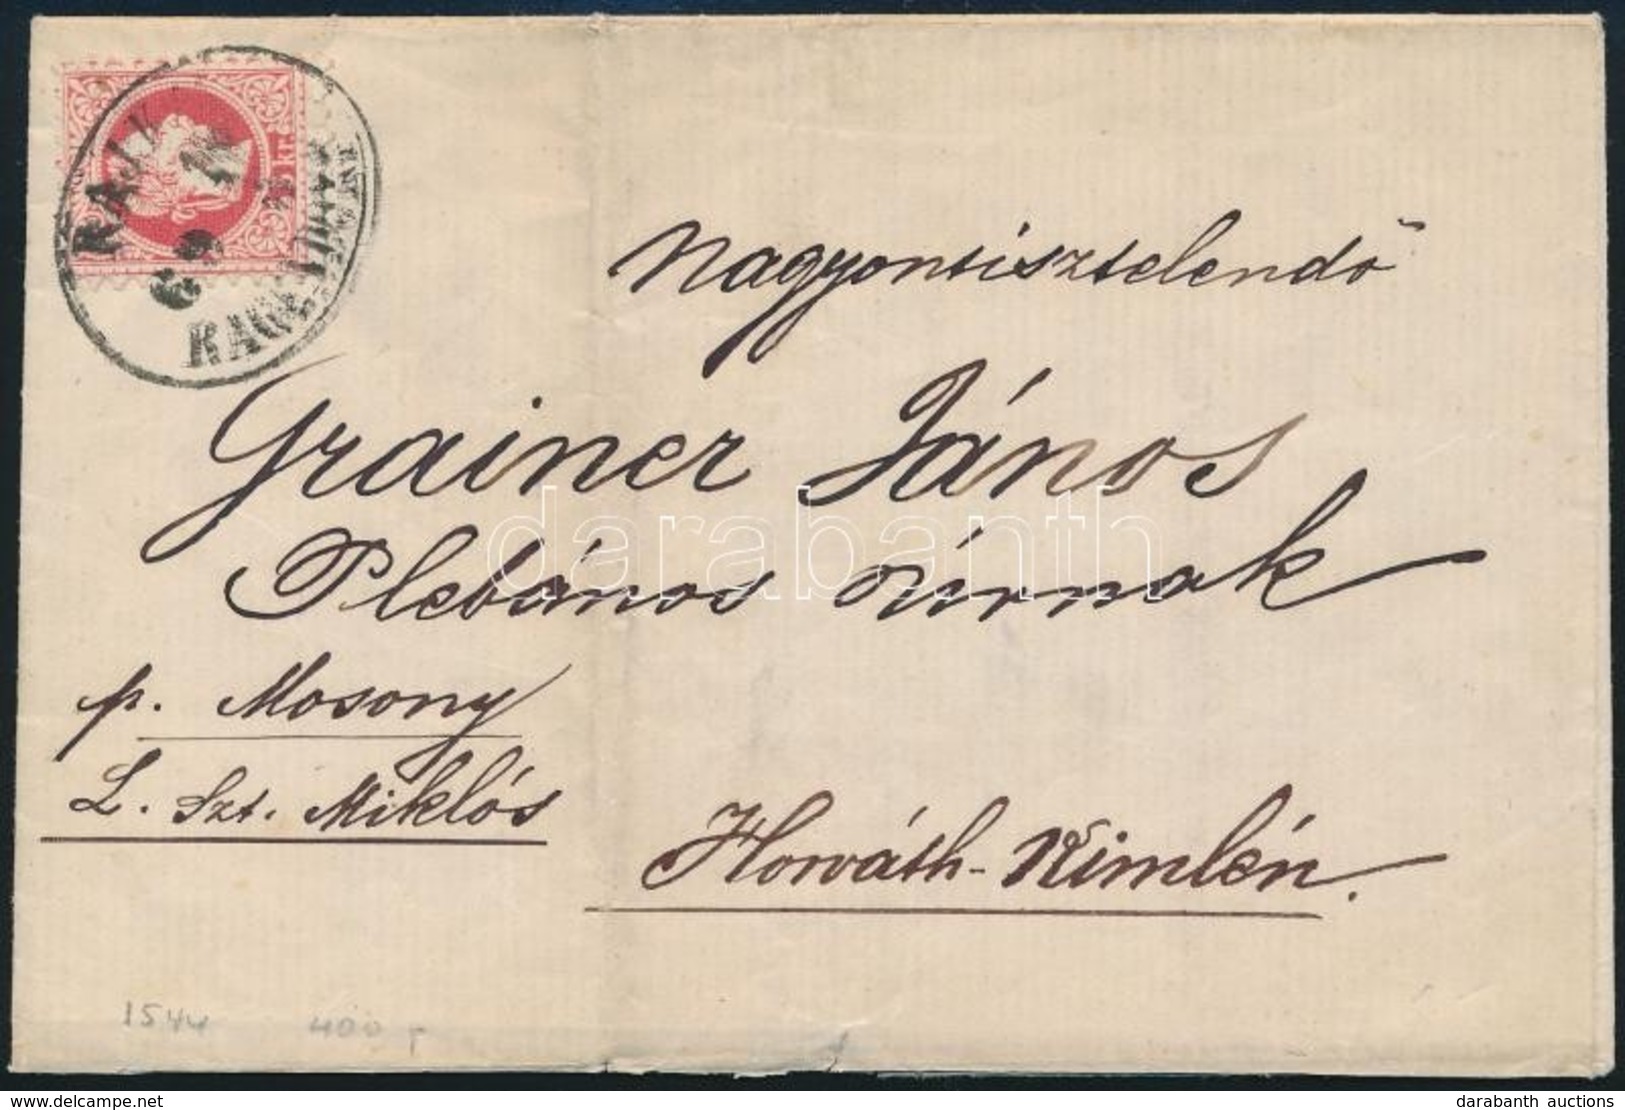 RAJK
69
5 kr.
Nagyontisztelendő
Grainer János
Plebános Úrnak
p. Mosony
L. Szt. Miklós
Horváth-Kimlén.
darabanth
1544 400
delcampe.net
darabanth auctions